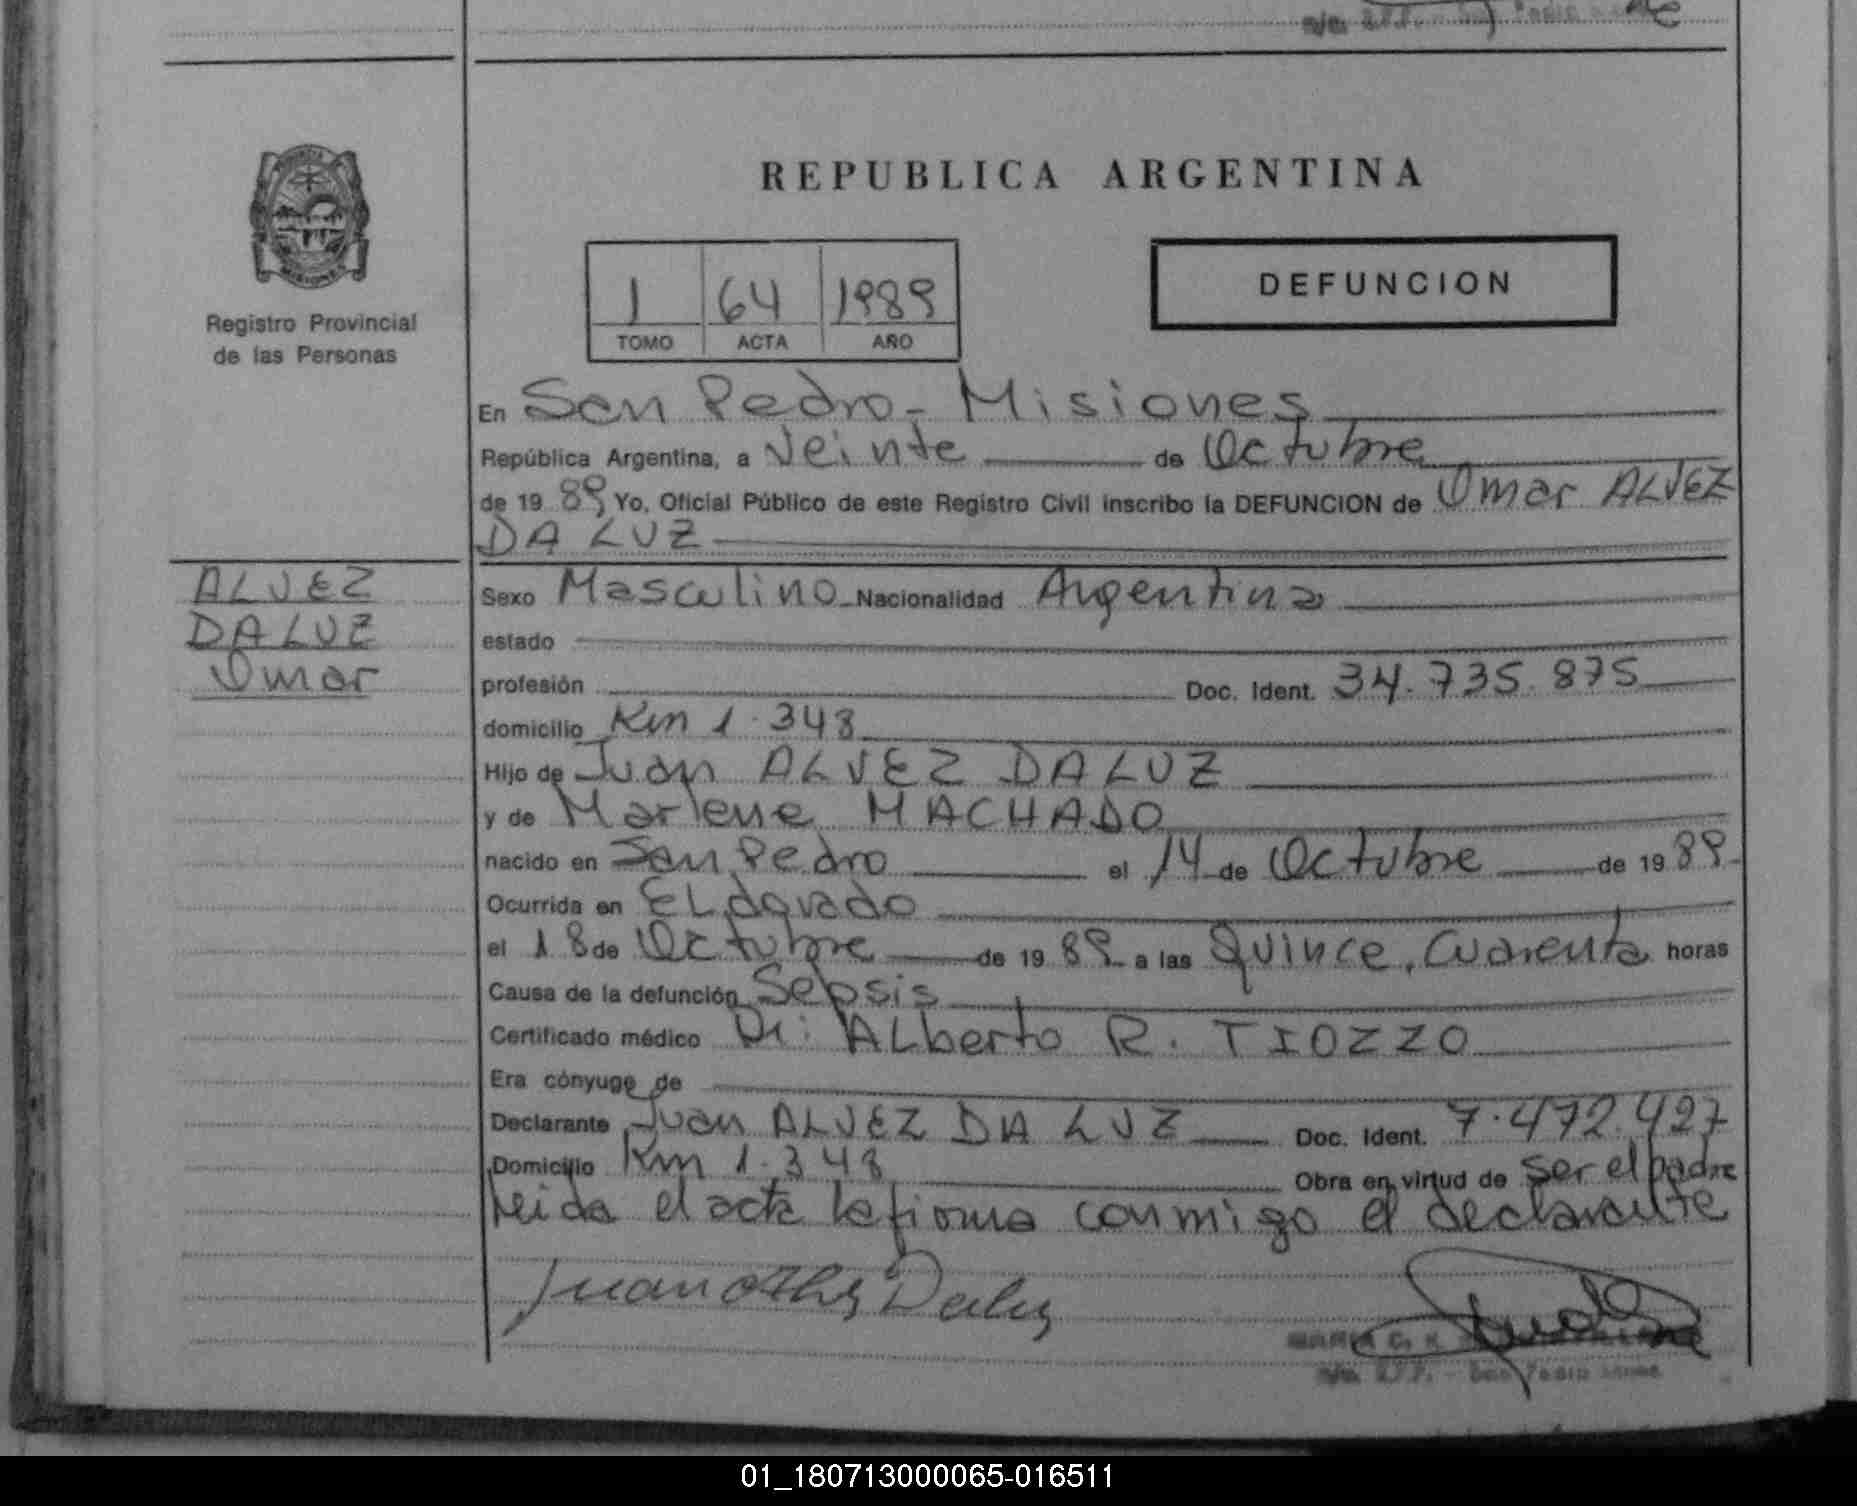 REPUBLICA ARGENTINA
DEFUNCION
Registro Provincial
de las Personas
1 64 1989
TOMO ACTA AÑO
En San Pedro - Misiones
República Argentina, a Veinte de Octubre
de 19 89 Yo, Oficial Público de este Registro Civil inscribo la DEFUNCION de Omar ALVEZ
DA LUZ
ALVEZ
DA LUZ
Omar
Sexo Masculino Nacionalidad Argentina
estado
profesión Doc. Ident. 34.735.875
domicilio Km 1.348
Hijo de Juan ALVEZ DA LUZ
y de Marlene MACHADO
nacido en San Pedro el 14 de Octubre de 19 89
Ocurrida en ELdorado
el 18 de Octubre de 19 89 a las Quince, Cuarenta horas
Causa de la defunción Sepsis
Certificado médico Dr: ALberto R. TIOZZO
Era cónyuge de
Declarante Juan ALVEZ DA LUZ Doc. Ident. 7.472.427
Domicilio Km 1.348 Obra en virtud de ser el padre
Leida el acta la firma conmigo el declarante
Juan
MARIA C.
San Pedro
01_180713000065-016511